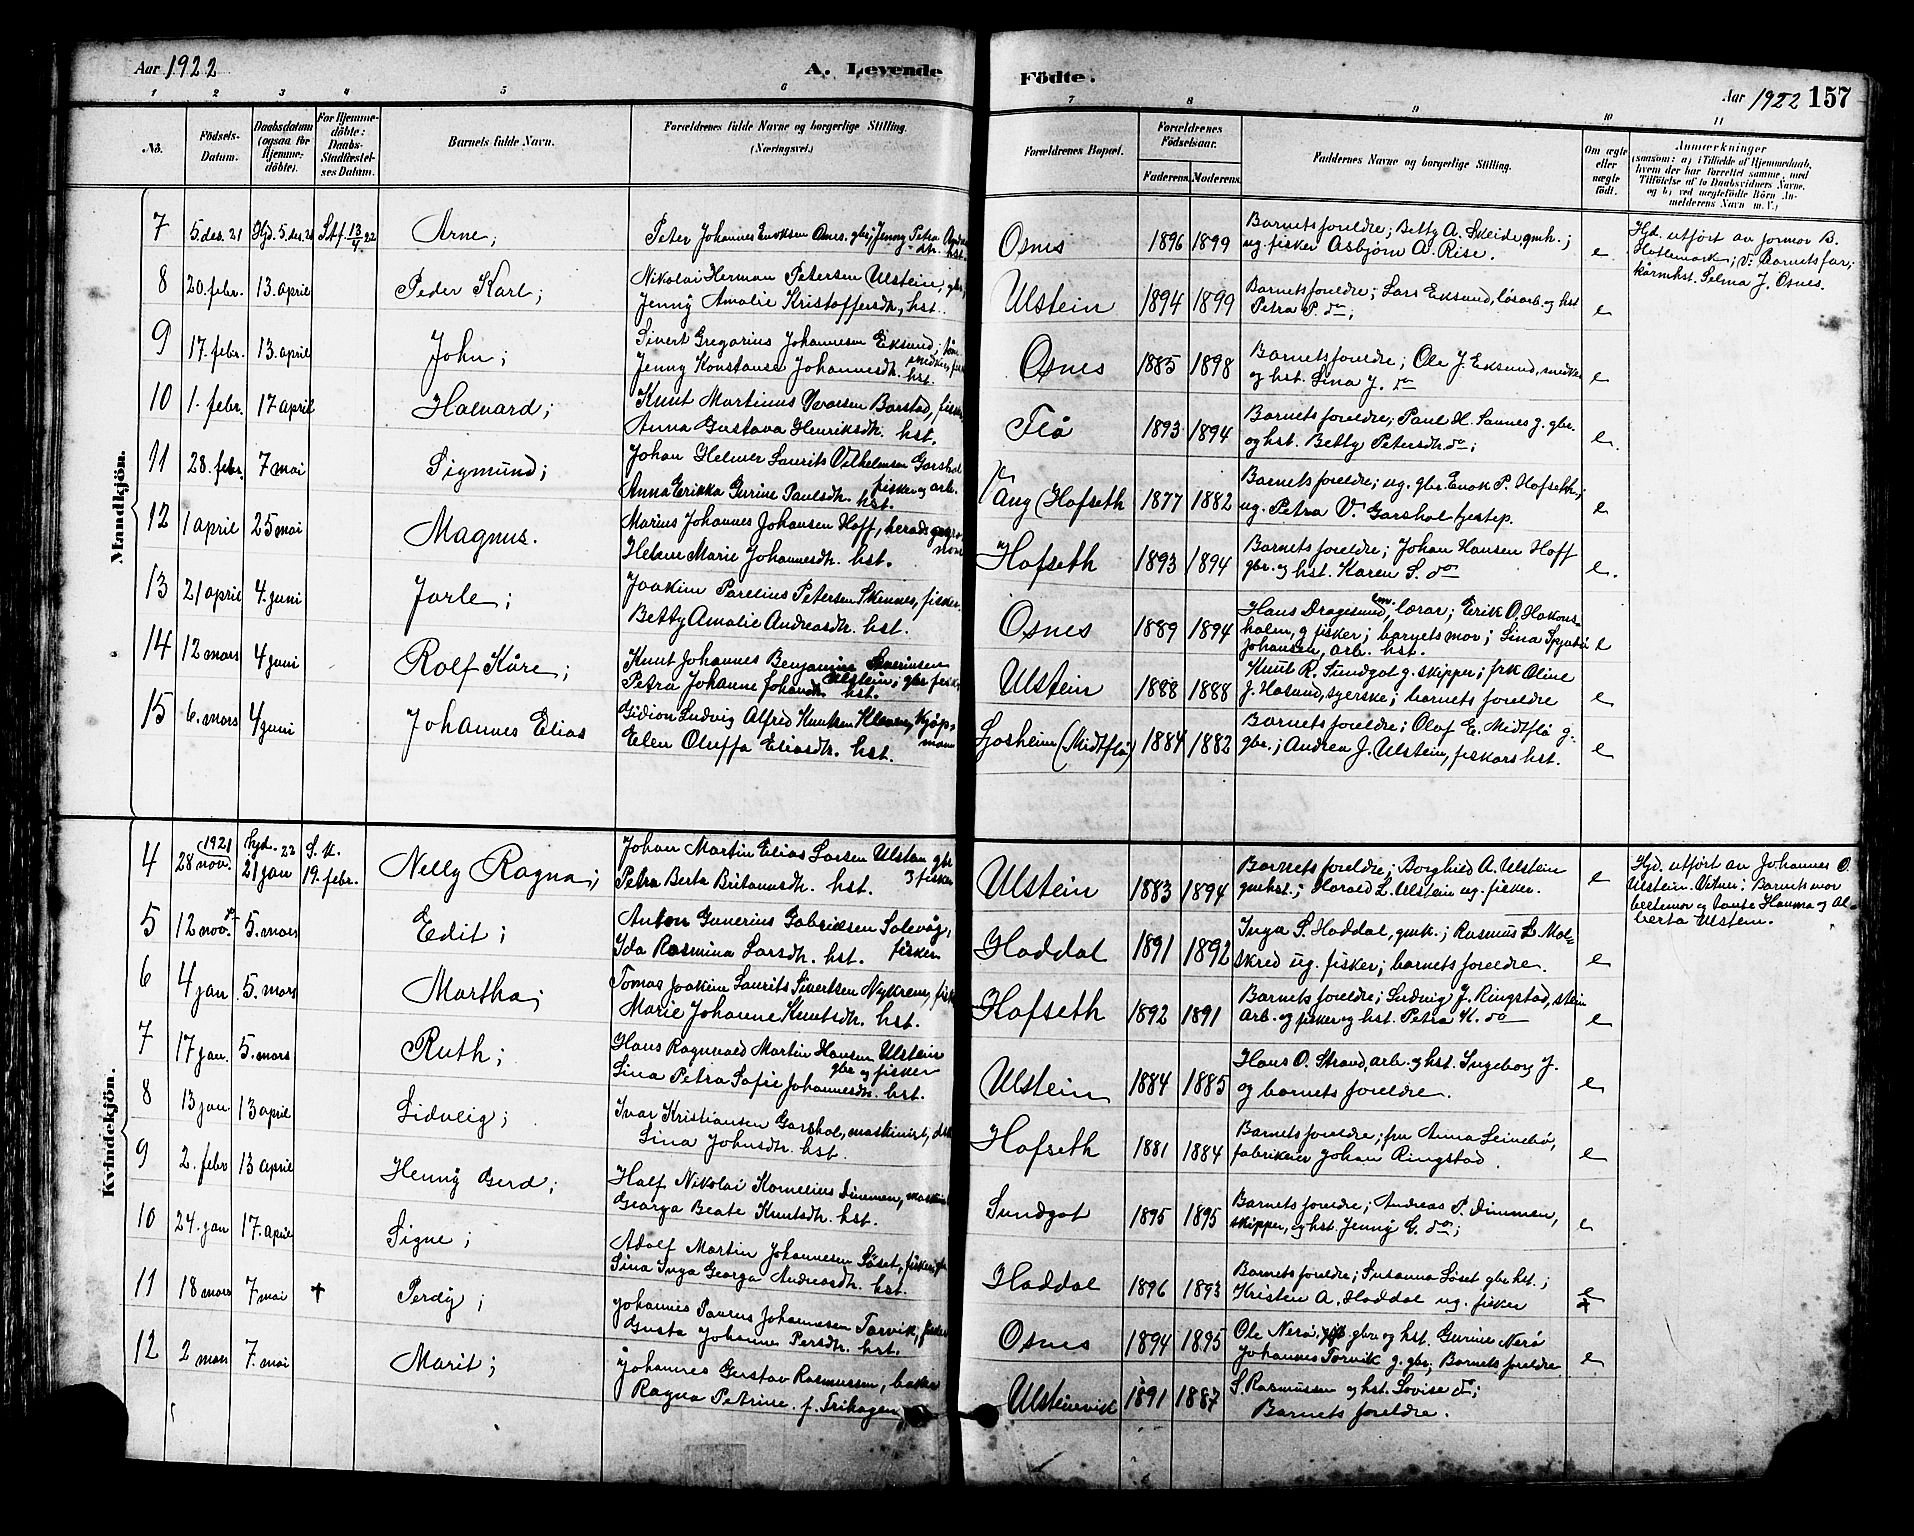 Aar 1922
A. Levende
Födte.
Aar 1922 157
1 2 3 4 5 6 7 8 9 10 11
No.
Födsels-Datum.
Daabsdatum (ogsaa for Hjemme-döbte).
For Hjemme-döbte: Daabs-Stadfæstel-ses Datum.
Barnets fulde Navn.
Forældrenes fulde Navne og borgerlige Stilling.
(Næringsvei.)
Forældrenes Bopæl.
Forældrenes Födselsaar.
Faderens. Moderens.
Faddernes Navne og borgerlige Stilling.
Om ægte eller uægte födt.
Anmærkninger
(saasom: a) i Tilfælde af Hjemmedaab,
hvem der har forrettet samme, med
Tilföielse af to Daabsvidners Navne,
og b) ved uægtefödte Börn An-
melderens Navn m. V.)
Mandkjön.
7 5. des. 21 Hjd. 5. des. 21 Stf. 13/4 22 Arne;
Peter Johannes Enoksen Osnes, gbr; Jenny Petra
hst.
Osnes 1896 1899
Barnets foreldre; Betty A. Skeide gmh.;
ug. fisker Asbjørn A. Rise. e
Hjd. utført av jormor B.
Hatlemark; V: Barnets far;
kårmhst. Selma J. Osnes.
8 20. febr. 13. april Peder Karl;
Nikolai Herman Petersen Ulstein; gbr;
Jenny Amalie Kristoffersdtr., hst.
Ulstein 1894 1899
Barnets foreldre; Lars Eksund, løsarb. og hst
Petra P. do; e
9 17. febr. 13. april John;
Sivert Gregarius Johannesen Eksund;
snedker,
Jenny Konstanse Johannesdtr. hst.
Osnes 1885 1898
Barnets foreldre; Ole J. Eksund, snedker
og hst. Lina J. do e
10 1. febr. 17 april Halvard;
Knut Martinus Ivarsen Barstad, fisker,
Anna Gustava Henriksdtr. hst.
Flø 1893 1894
Barnets foreldre; Paul H. Sannes g. gbr.
og hst. Betty Petersdtr. do; e
11 28. febr. 7 mai Sigmund;
Johan Helmer Laurits Vilhelmsen Garshol
fisker og arb.
Anna Erikka Gurine Paulsdtr. hst.
Vang (Hofseth 1877 1882
Barnets foreldre; ug. gbr. Enok P. Hofseth;
ug. Petra V. Garshol tjestep. e
12 1 april 25 mai Magnus.
Marius Johannes Johansen Hoff, herads
Helene Marie Johannesdtr. hst.
Hofseth 1893 1894
Barnets foreldre; Johan Hansen Hoff
gbr. og hst. Karen S. do e.
13 21 april 4. juni Jarle;
Joakim Parelius Petersen Skeines, fisker.
Betty Amalie Andreasdtr. hst.
Osnes 1889 1894
Hans Dragesund em. lærar; Erik O. Hakons-
holm, g fisker; barnets mor; Lina
Johansen, arb. hst. e
14 12 mars 4 juni Rolf Kåre;
Knut Johannes Benjamin Severinsen
Ulstein; gbr fisk.
Petra Johanne Johansdtr. hst.
Ulstein 1888 1888
Knut R. Sundgot g. skipper; frk Oline
J. Hasund, syerske; barnets foreldre e
15 6. mars 4 juni Johannes Elias
Gidion Ludvig Alfred Knutsen Kleven, kjøp-
mann
Elen Oluffa Eliasdtr. hst.
Ljosheim (Midtflø) 1884 1882
Barnets foreldre; Olaf E. Midtflø g.
gbr.; Andrea J. Ulstein, fiskars hst. e
Kvindekjön.
4 1921 28 nov. Hjd. 22 21 jan S. K. 19. febr. Nelly Ragna;
Johan Martin Elias Larsen Ulstein gbr
fisker
Petra Berta Britanusdtr. hst.
Ulstein 1883 1894
Barnets foreldre; Borghild A. Ulstein
gmhst.; Harald L. Ulstein ug. fisker. e
Hjd. utført av Johannes O.
Ulstein. Vitner; Barnets mor
bestemor og tante Hanna og Al-
berta Ulstein.
5 12 nov. 5. mars Edit;
Anton Gunerius Gabrielsen Solevåg,
Ida Rasmina Larsdtr. hst. fisker
Haddal 1891 1892
Inga S. Haddal, gmk.; Rasmus L
skred ug. fisker; barnets foreldre. e
6 4 jan 5. mars Martha;
Tomas Joakim Laurits Sivertsen Nykrem, fisk
Marie Johanne Knutsdtr. hst.
Hofseth 1892 1891
Barnets foreldre; Ludvig J. Ringstad, stein
arb. og fisker og hst. Petra K. do e
7 17 jan. 5. mars Ruth;
Hans Ragnvald Martin Hansen Ulstein
gbr og fisker
Lina Petra Sofie Johannesdtr. hst.
Ulstein 1884 1885
Hans O. Strand, arb. og hst. Ingeborg J.
og barnets foreldre. e
8 13 jan 13 april Sidveig;
Ivar Kristiansen Garshol, maskinist,
Lina Johnsdtr. hst.
Hofseth 1881 1884
Barnets foreldre; fru Anna Leinebø,
fabrikeier Johan Ringstad. e
9 2. febr 13 april Henny Gerd;
Half Nikolai Kornelius Dimmen,
Georga Beate Knutsdtr. hst.
Sundgot 1895 1895
Barnets foreldre; Andreas P. Dimmen,
skipper, og hst. Jenny C. do; e
10 24. jan 17. april Signe;
Adolf Martin Johannesen Løset,
Lina Inga Georga Andreasdtr. hst.
Haddal 1896 1893
Barnets foreldre; Susanna Løset gbr hst.;
Kristen A. Haddal ug. fisker e
11 18 mars 7 mai † Perdy;
Johannes Paurus Johannesen Torvik, fisker
Gusta Johanne Persdtr. hst.
Osnes 1894 1895
Ole Nerø, gbr og hst. Gurine Nerø
Johannes Torvik g. gbr; Barnets foreldre e
12 2 mars 7. mai Marit;
Johannes Gustav Rasmussen, baker
Ragna Petrine f. Frihagen
Ulsteinvik 1891 1887
S. Rasmussen og hst. Lovise do;
Barnets foreldre.